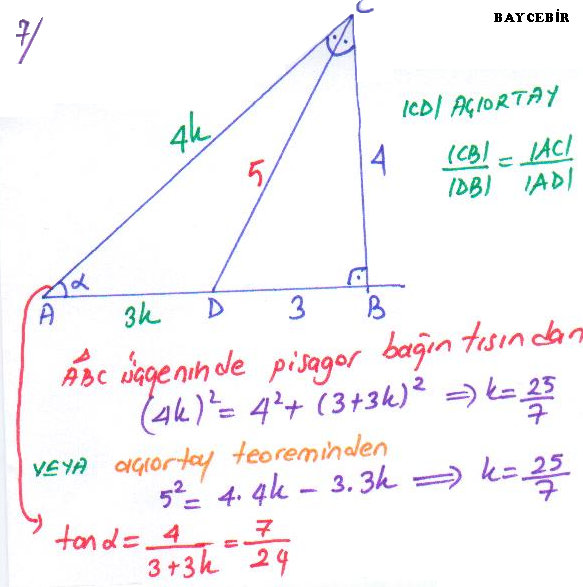 BAYCEBİR
7/
C
|CD| AÇIORTAY
|CB| / |DB| = |AC| / |AD|
4k
5
4
α
A
3k
D
3
B
ABC üçgeninde pisagor bağıntısından
(4k)² = 4² + (3+3k)² ⇒ k = 25/7
VEYA açıortay teoreminden
5² = 4.4k − 3.3k ⇒ k = 25/7
tanα = 4/(3+3k) = 7/24